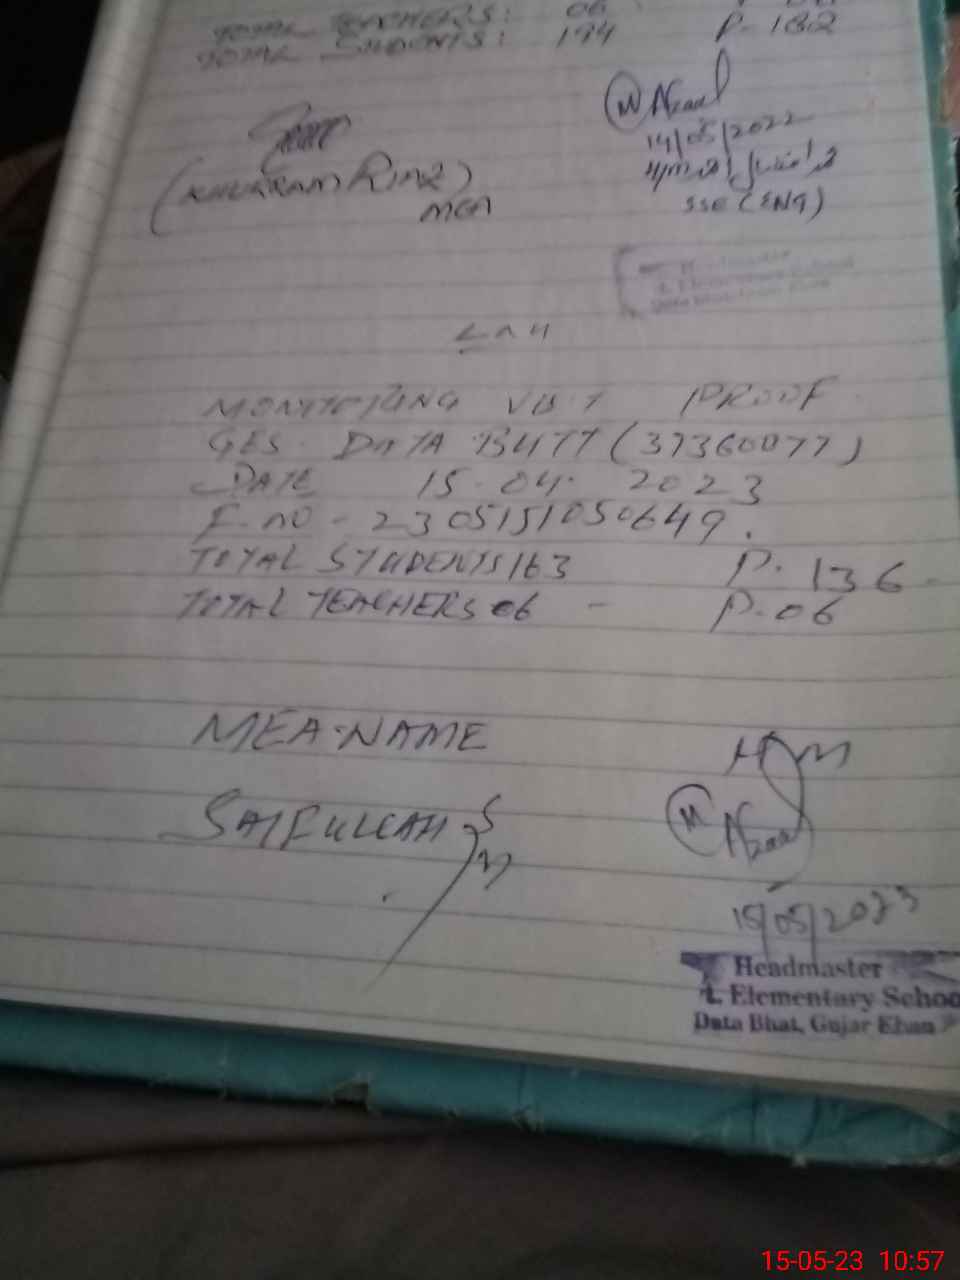 TOTAL TEACHERS: 06
TOTAL STUDENTS: 194 P-182
M Afzaal
14/05/2022
(KHURRAM RIAZ)
MEA
SSE (ENG)
Headmaster
Elementary School
MONITORING VISIT PROOF
GES DATA BUTT (37360077)
DATE 15-04-2023
F.NO - 2305151050649.
TOTAL STUDENTS 163 P. 136
TOTAL TEACHERS 06 - P-06
MEA-NAME
SAIFULLAH
HM
M Afzaal
15/05/2023
Headmaster
Elementary School
Data Bhat, Gujar Khan
15-05-23 10:57